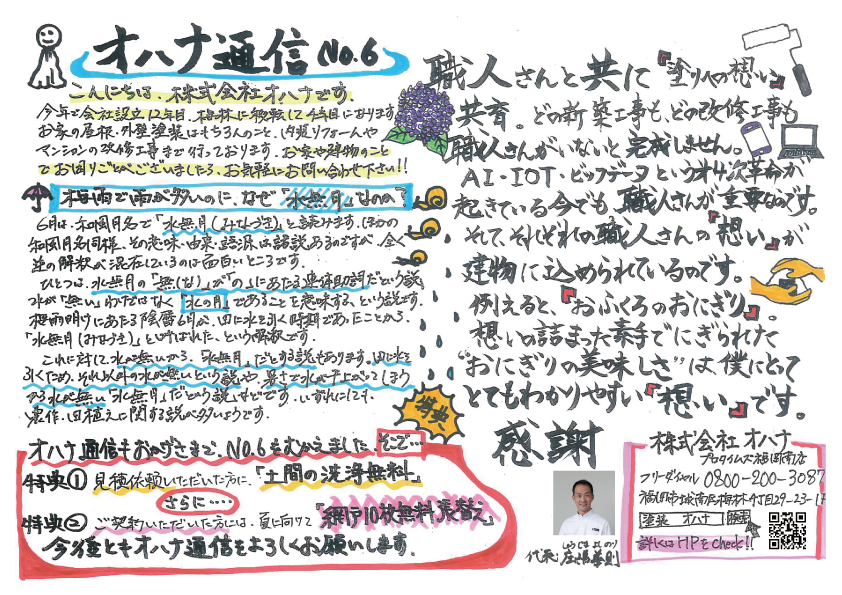 オハナ通信 No.6
こんにちは、株式会社オハナです。
今年で会社設立12年目、梅林に移転して4年目になります。
お家の屋根・外壁塗装はもちろんのこと、内装リフォームや
マンションの改修工事まで行っております。お家や建物のこと
でお困りごとがございましたら、お気軽にお問い合わせ下さい!!
梅雨で雨が多いのに、なぜ「水無月」なのか?
6月は、和風月名で「水無月(みなづき)」と読みます。ほかの
和風月名同様、その意味・由来・語源は諸説あるのですが、全く
逆の解釈が混在しているのは面白いところです。
ひとつは、水無月の「無(な)」が「の」にあたる連体助詞だという説
水が「無い」わけではなく「水の月」であることを意味する、という説です。
梅雨明けにあたる陰暦6月が、田に水を引く時期であったことから、
「水無月(みなづき)」と呼ばれた、という解釈です。
これに対して、水が無いから、「水無月」だとする説もあります。田に水を
引くため、それ以外の水が無いという説や、暑さで水が干上がってしまう
から水が無い「水無月」だという説などです。いずれにしても、
農作・田植えに関する説が多いようです。
特典
オハナ通信もおかげさまで、NO.6をむかえました、そこで…
特典① 見積依頼いただいた方に、「土間の洗浄無料」
さらに…
特典② ご契約いただいた方には、夏に向けて「網戸10枚無料張替え」
今後ともオハナ通信をよろしくお願いします。
職人さんと共に『塗りへの想い』
共有。どの新築工事も、どの改修工事も
職人さんがいないと完成しません。
AI・IOT・ビックデータという第4次革命が
起きている今でも、職人さんが重要なのです。
そして、それぞれの職人さんの『想い』が
建物に込められているのです。
例えると、『おふくろのおにぎり』。
想いの詰まった素手でにぎられた
"おにぎりの美味しさ"は、僕にとって
とてもわかりやすい『想い』です。
感謝
代表
株式会社 オハナ
プロタイムズ福岡南店
フリーダイヤル 0800-200-3087
福岡市城南区梅林4丁目29-23-1F
塗装 オハナ 検索
詳しくはHPをcheck!!